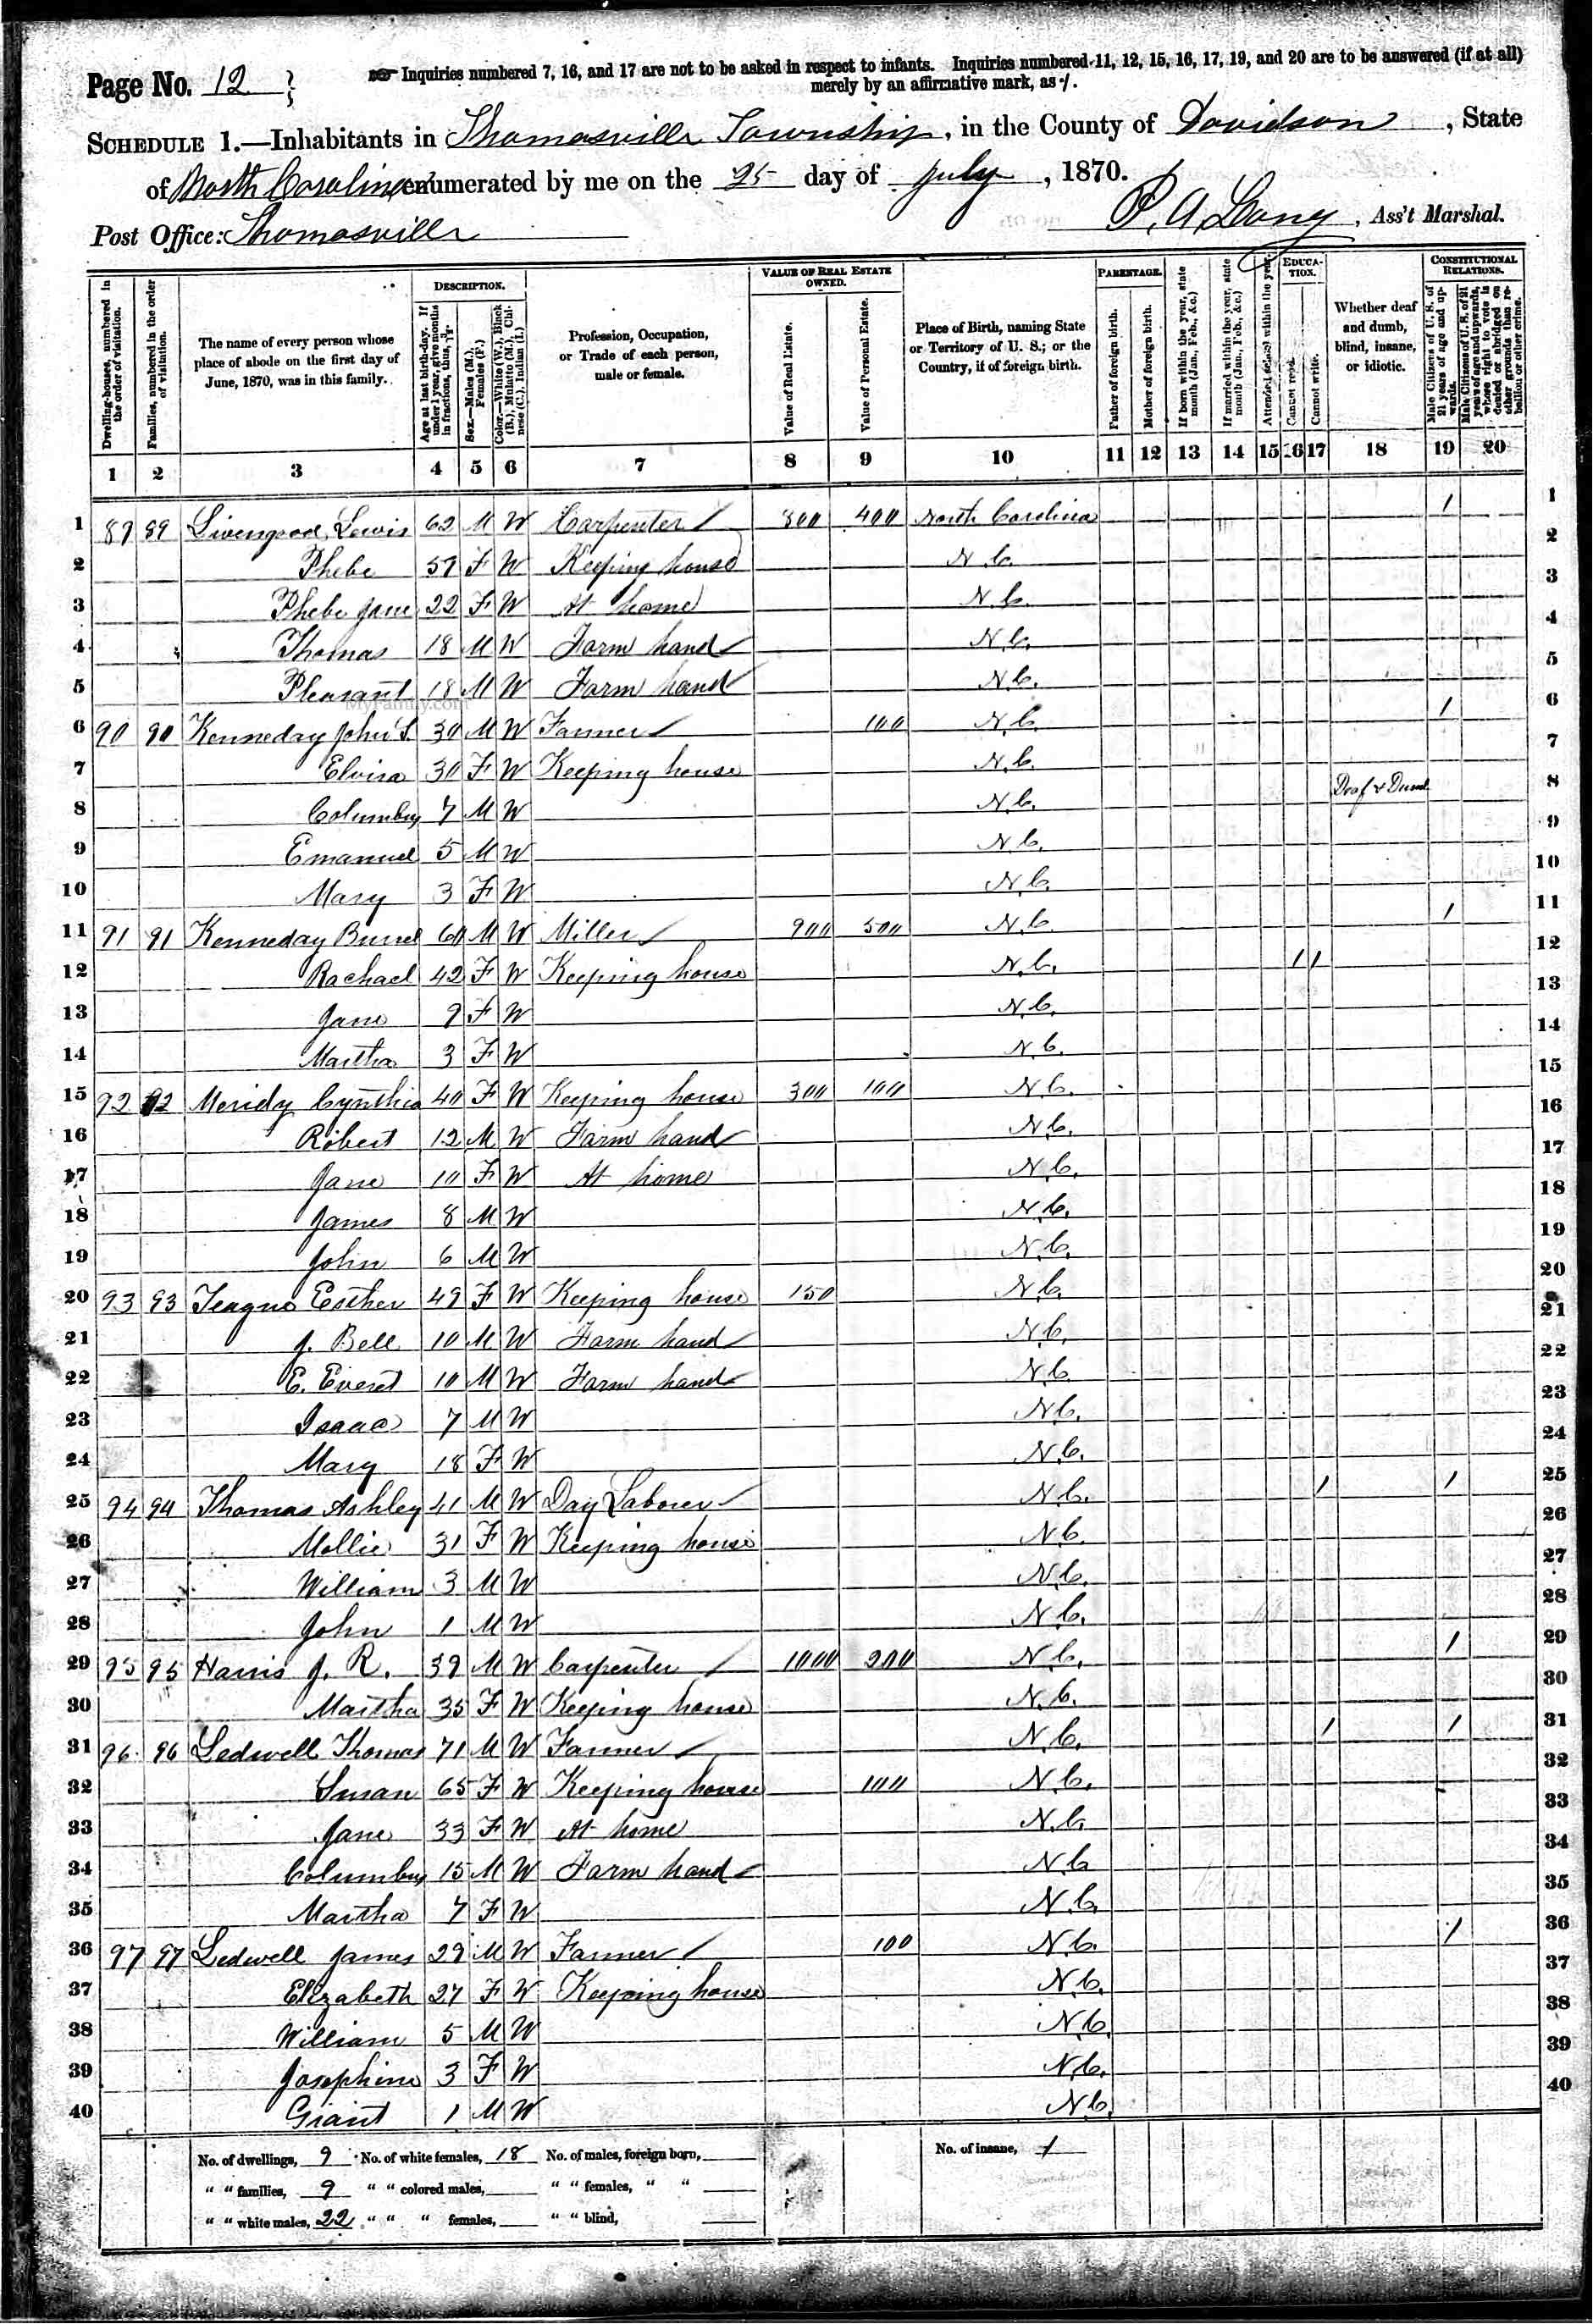 Page No. 12
Inquiries numbered 7, 16, and 17 are not to be asked in respect to infants. Inquiries numbered 11, 12, 15, 16, 17, 19, and 20 are to be answered (if at all)
merely by an affirmative mark, as /.
SCHEDULE 1.—Inhabitants in Thomasville Township, in the County of Davidson, State
of North Carolina enumerated by me on the 25 day of July, 1870.
Post Office: Thomasville P. A. Long, Ass't Marshal.
Dwelling-houses, numbered in the order of visitation.
Families, numbered in the order of visitation.
The name of every person whose place of abode on the first day of June, 1870, was in this family.
DESCRIPTION.
Age at last birth-day. If under 1 year, give months in fractions, thus,
Sex.—Males (M.), Females (F.)
Color.—White (W.), Black (B.), Mulatto (M.), Chinese (C.), Indian (I.)
Profession, Occupation, or Trade of each person, male or female.
VALUE OF REAL ESTATE OWNED.
Value of Real Estate.
Value of Personal Estate.
Place of Birth, naming State or Territory of U. S.; or the Country, if of foreign birth.
PARENTAGE.
Father of foreign birth.
Mother of foreign birth.
If born within the year, state month (Jan., Feb., &c.)
If married within the year, state month (Jan., Feb., &c.)
Attended school within the year.
EDUCATION.
Cannot read.
Cannot write.
Whether deaf and dumb, blind, insane, or idiotic.
CONSTITUTIONAL RELATIONS.
Male Citizens of U. S. of 21 years of age and upwards.
Male Citizens of U. S. of 21 years of age and upwards, whose right to vote is denied or abridged on other grounds than rebellion or other crime.
1 2 3 4 5 6 7 8 9 10 11 12 13 14 15 16 17 18 19 20
1 89 89 Livengood, Lewis 62 M W Carpenter / 800 400 North Carolina / 1
2 Phebe 57 F W Keeping house N.C. 2
3 Phebe Jane 22 F W At home N.C. 3
4 Thomas 18 M W Farm hand N.C. 4
5 Pleasant 18 M W Farm hand N.C. 5
MyFamily.com
6 90 90 Kenneday John S. 30 M W Farmer / 100 N.C. / 6
7 Elvira 30 F W Keeping house N.C. 7
8 Columbus 7 M W N.C. Deaf & Dumb 8
9 Emanuel 5 M W N.C. 9
10 Mary 3 F W N.C. 10
11 91 91 Kenneday Burrel 60 M W Miller / 900 500 N.C. / 11
12 Rachael 42 F W Keeping house N.C. / / 12
13 Jane 9 F W N.C. 13
14 Martha 3 F W N.C. 14
15 92 92 Meridy Cynthia 40 F W Keeping house 300 100 N.C. 15
16 Robert 12 M W Farm hand N.C. 16
17 Jane 10 F W At home N.C. 17
18 James 8 M W N.C. 18
19 John 6 M W N.C. 19
20 93 93 Teague Esther 49 F W Keeping house 150 N.C. 20
21 J. Bell 10 M W Farm hand N.C. 21
22 E. Everet 10 M W Farm hand N.C. 22
23 Isaac 7 M W N.C. 23
24 Mary 18 F W N.C. 24
25 94 94 Thomas Ashley 41 M W Day Laborer N.C. / / 25
26 Mollie 31 F W Keeping house N.C. 26
27 William 3 M W N.C. 27
28 John 1 M W N.C. 28
29 95 95 Harris J. R. 39 M W Carpenter / 1000 200 N.C. / 29
30 Martha 35 F W Keeping house N.C. 30
31 96 96 Ledwell Thomas 71 M W Farmer / N.C. / / 31
32 Susan 65 F W Keeping house 100 N.C. 32
33 Jane 33 F W At home N.C. 33
34 Columbus 15 M W Farm hand N.C. 34
35 Martha 7 F W N.C. 35
36 97 97 Ledwell James 29 M W Farmer / 100 N.C. / 36
37 Elizabeth 27 F W Keeping house N.C. 37
38 William 5 M W N.C. 38
39 Josephine 3 F W N.C. 39
40 Giant 1 M W N.C. 40
No. of dwellings, 9 No. of white females, 18 No. of males, foreign born, No. of insane, 1
" " families, 9 " " colored males, " " females, " "
" " white males, 22 " " " females, " " blind,